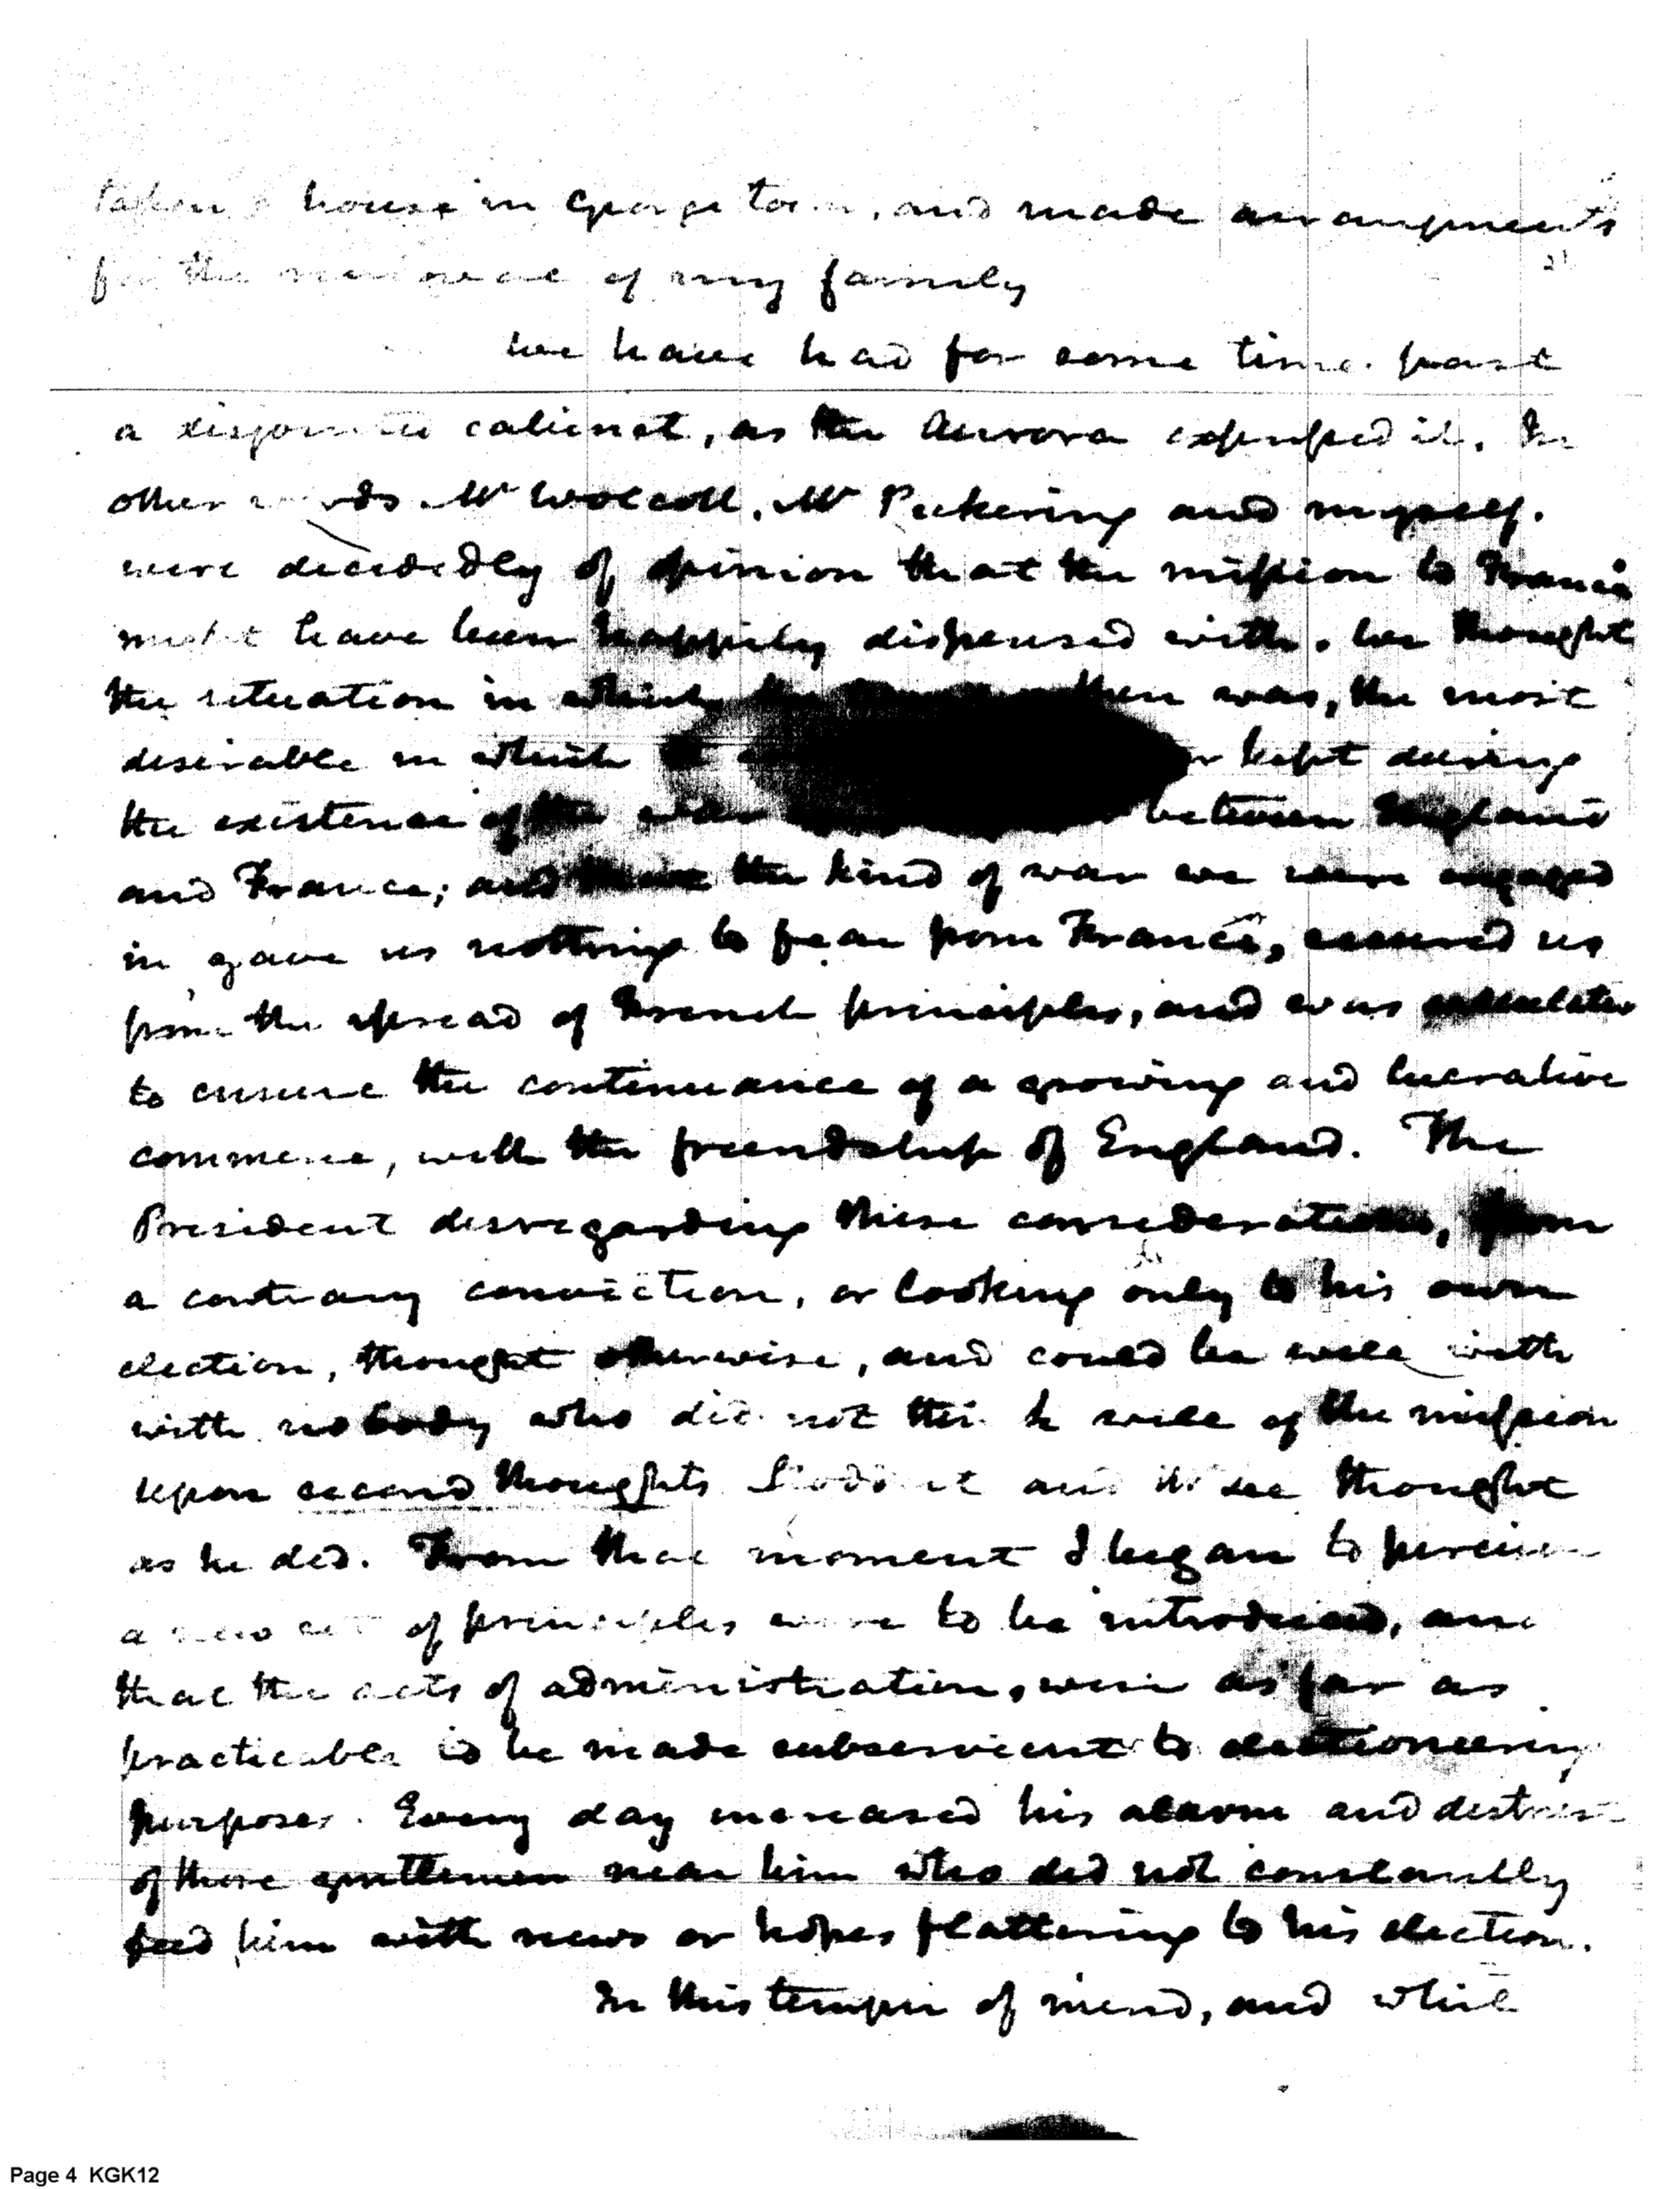 taken a house in George town, and made arrangements
for the removal of my family
we have had for some time past
a disjointed cabinet, as the Aurora expressed it. In
other words Mr Wolcott, Mr Pickering and myself.
were decidedly of opinion that the mission to France
might have been happily dispensed with. we thought
the situation in which then was, the most
desirable in which kept during
the existence of the war between England
and France; and the kind of war we were engaged
in gave us nothing to fear from France, secured us
from the spread of French principles, and was calculated
to ensure the continuance of a growing and lucrative
commerce, with the friendship of England. The
President disregarding these considerations, from
a contrary conviction, or looking only to his own
election, thought otherwise, and could be well with
with nobody who did not think well of the mission
upon second thoughts Stoddert and Mr Lee thought
as he did. From that moment I began to perceive
a new set of principles were to be introduced, and
that the acts of administration, were as far as
practicable to be made subservient to electioneering
purposes. Every day increased his alarm and distrust
of those gentlemen near him who did not constantly
feed him with news or hopes flattering to his election.
In this temper of mind, and while
Page 4 KGK12